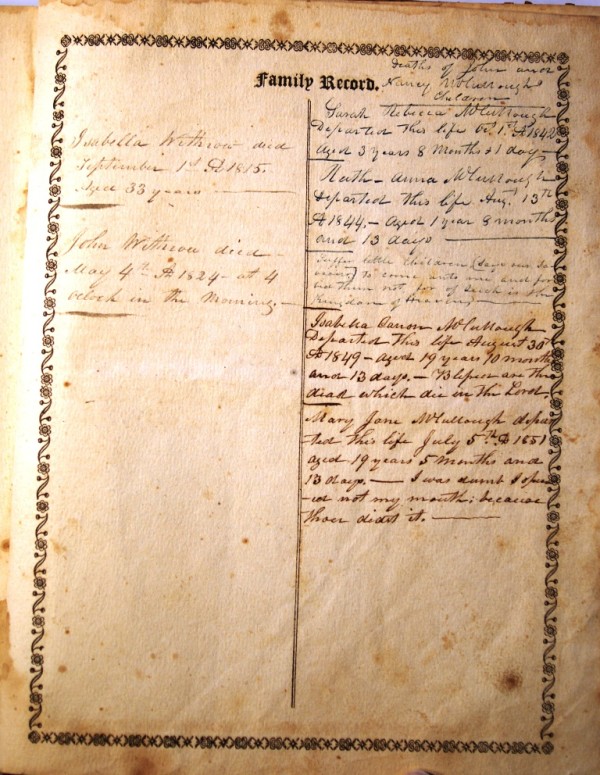 Family Record.
Isabella Withrow died
September 1st A 1815.
Aged 33 years
John Withrow died
May 4th A 1824 - at 4
oclock in the Morning. -
Deaths of John and
Nancy McCullough
Children
Sarah Rebecca McCullough
Departed this life Oct 1st A 1842
aged 3 years 8 Months & 1 day -
Ruth - Anna McCullough
Departed this life Aug 13th
A 1844. - Aged 1 year 8 months
and 13 days
Suffer little Children (says our Sa-
viour) to come unto me and for-
bid them not, for of such is the
Kingdom of Heaven -
Isabella McCullough
Departed This life August 30th
A 1849 - aged 19 years 10 months
and 13 days. - Blessed are the
dead which die in the Lord.
Mary Jane McCullough depar
ted this life July 5th A 1851
aged 19 years 5 months and
13 days. - I was dumb I open
-ed not my mouth; because
thou didst it. -